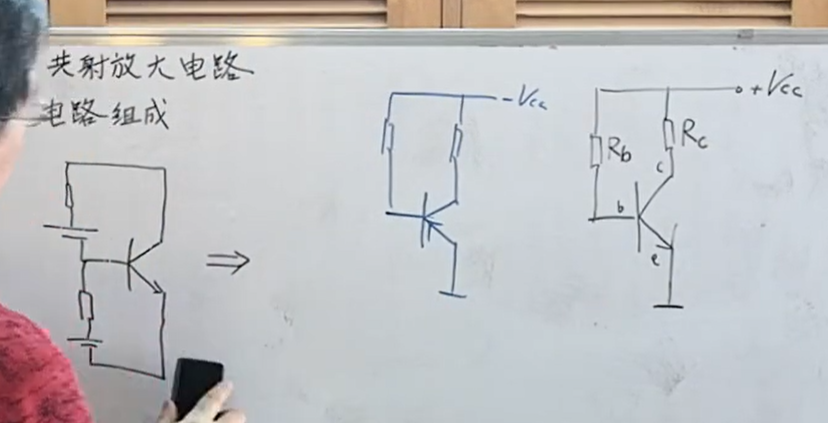 共射放大电路
电路组成
-Vcc
+Vcc
Rb
Rc
c
b
e